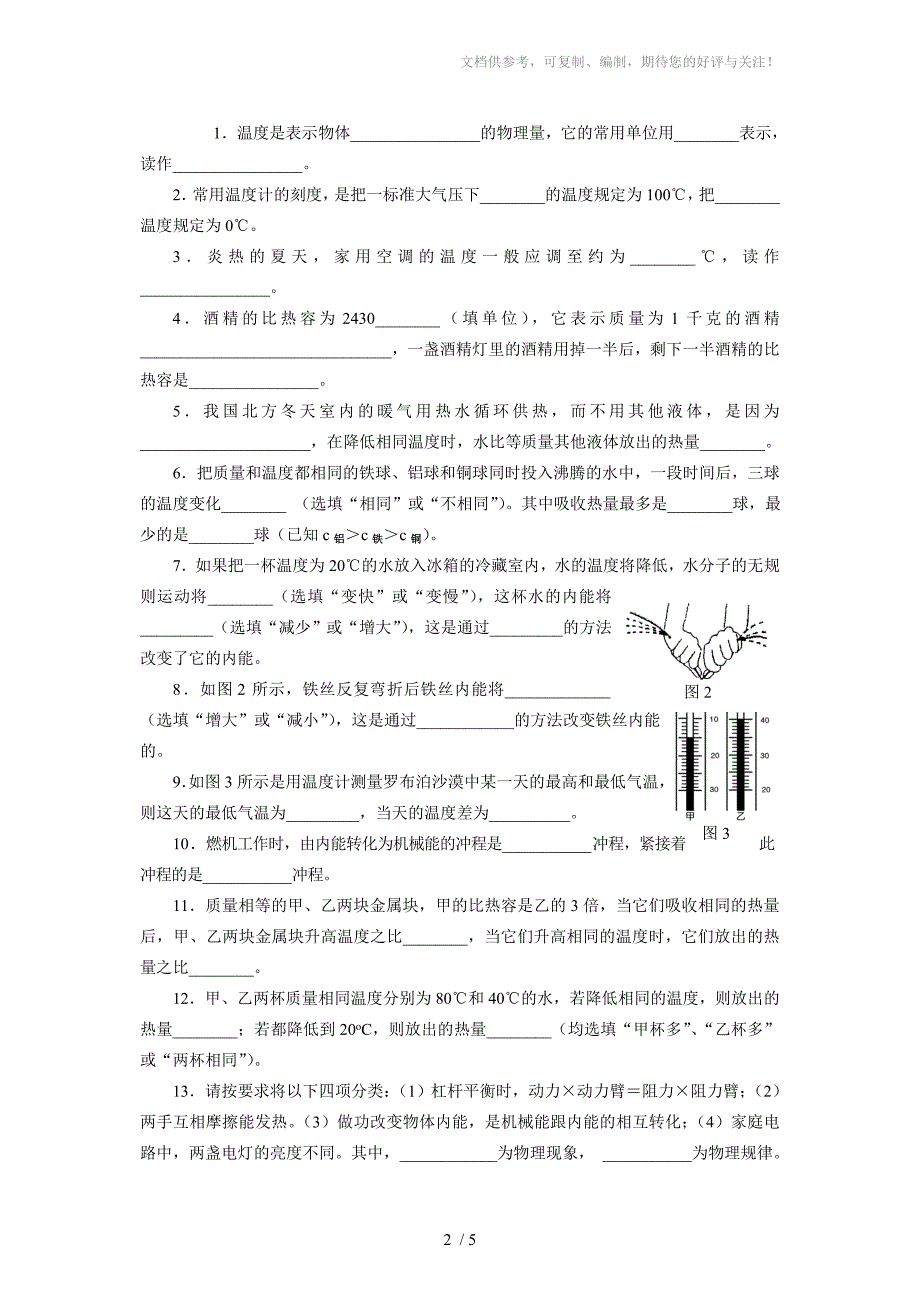 文档供参考，可复制、编制，期待您的好评与关注！
1．温度是表示物体________________的物理量，它的常用单位用________表示，
读作________________。
2．常用温度计的刻度，是把一标准大气压下________的温度规定为100℃，把________
温度规定为0℃。
3．炎热的夏天，家用空调的温度一般应调至约为________℃，读作
________________。
4．酒精的比热容为2430________（填单位），它表示质量为1千克的酒精
_______________________________，一盏酒精灯里的酒精用掉一半后，剩下一半酒精的比
热容是________________。
5．我国北方冬天室内的暖气用热水循环供热，而不用其他液体，是因为
_____________________，在降低相同温度时，水比等质量其他液体放出的热量________。
6．把质量和温度都相同的铁球、铝球和铜球同时投入沸腾的水中，一段时间后，三球
的温度变化________ （选填“相同”或“不相同”）。其中吸收热量最多是________球，最
少的是________球（已知c铝＞c铁＞c铜）。
7．如果把一杯温度为20℃的水放入冰箱的冷藏室内，水的温度将降低，水分子的无规
则运动将________（选填“变快”或“变慢”），这杯水的内能将
_________（选填“减少”或“增大”），这是通过_________的方法
改变了它的内能。
图2
8．如图2所示，铁丝反复弯折后铁丝内能将_____________
（选填“增大”或“减小”），这是通过____________的方法改变铁丝内能
的。
10 40
20 30
30 20
甲 乙
图3
9．如图3所示是用温度计测量罗布泊沙漠中某一天的最高和最低气温，
则这天的最低气温为_________，当天的温度差为__________。
10．燃机工作时，由内能转化为机械能的冲程是___________冲程，紧接着 此
冲程的是___________冲程。
11．质量相等的甲、乙两块金属块，甲的比热容是乙的3倍，当它们吸收相同的热量
后，甲、乙两块金属块升高温度之比________，当它们升高相同的温度时，它们放出的热
量之比________。
12．甲、乙两杯质量相同温度分别为80℃和40℃的水，若降低相同的温度，则放出的
热量________；若都降低到20ºC，则放出的热量________（均选填“甲杯多”、“乙杯多”
或“两杯相同”）。
13．请按要求将以下四项分类：（1）杠杆平衡时，动力×动力臂＝阻力×阻力臂；（2）
两手互相摩擦能发热。（3）做功改变物体内能，是机械能跟内能的相互转化；（4）家庭电
路中，两盏电灯的亮度不同。其中，____________为物理现象， ___________为物理规律。
2 / 5